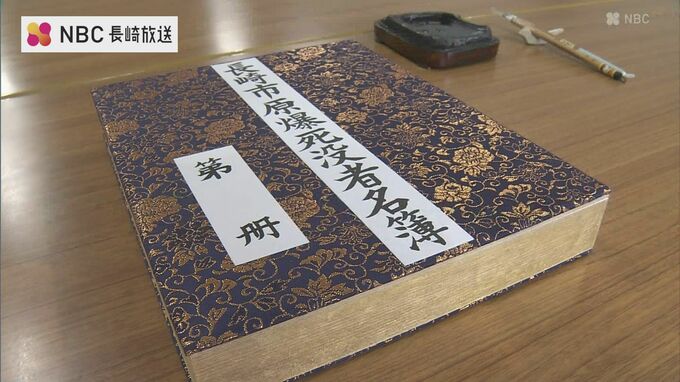 NBC 長崎放送
NBC
長崎市原爆死没者名簿
第 冊